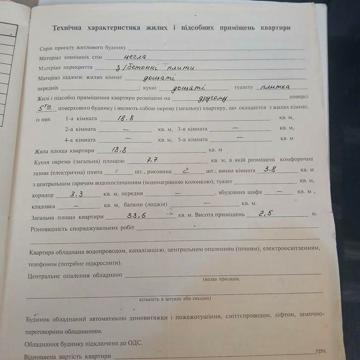 Технічна характеристика жилих і підсобних приміщень квартири
Серія проекту житлового будинку
Матеріал зовнішніх стін цегла
Матеріал перекриття з/бетонні плити
Матеріал підлоги: жилих кімнат дощаті
передній кухні дощаті туалету плитка
Жилі і підсобні приміщення квартири розміщені на другому поверсі
5ти поверхового будинку і являють собою окрему (загальну) квартиру, що складається з жилих кімнат,
із них 1-а кімната 18.8 кв. м,
2-а кімната — кв. м, 3-я кімната — кв. м,
4-а кімната — кв. м, 5-а кімната — кв. м
Жила площа квартири 18.8 кв. м
Кухня окрема (загальна) площею 7.7 кв. м, в якій розміщені конфорочна
газова (електрична) плита шт., раковина 2 шт., ванна кімната 3.8 кв. м
з центральним гарячим водопостачанням (водонагрівною колонкою), туалет кв. м,
коридор 3.3 кв. м, передня — кв. м, вбудована шафа — кв. м,
кладовка — кв. м, балкони (лоджії) — кв. м.
Загальна площа квартири 33,6 кв. м Висота приміщень 2,5 м.
Різновидність споруджувальних робіт
Квартира обладнана водопроводом, каналізацією, центральним опаленням (пічним), електроосвітленням,
телефоном (потрібне підкреслити).
Центральне опалення обладнано
(назва приладів,
кількість в штуках або секціях)
Будинок обладнаний автоматикою димовитяжки і пожежогасіння, сміттєпроводом, ліфтом, замочно-
переговорним обладнанням.
Обладнання будинку підключено до ОДС.
Відновлена вартість квартири грн.